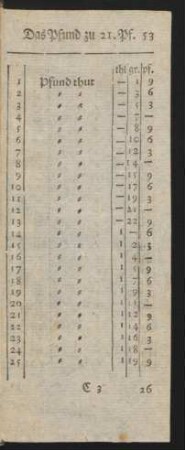 Das Pfund zu 21. Pf. 53
thl gr. pf.
1 Pfund thut — 1 9
2 〃 〃 — 3 6
3 〃 〃 — 5 3
4 〃 〃 — 7 —
5 〃 〃 — 8 9
6 〃 〃 — 10 6
7 〃 〃 — 12 3
8 〃 〃 — 14 —
9 〃 〃 — 15 9
10 〃 〃 — 17 6
11 〃 〃 — 19 3
12 〃 〃 — 21 —
13 〃 〃 — 22 9
14 〃 〃 1 — 6
15 〃 〃 1 2 3
16 〃 〃 1 4 —
17 〃 〃 1 5 9
18 〃 〃 1 7 6
19 〃 〃 1 9 3
20 〃 〃 1 11 —
21 〃 〃 1 12 9
22 〃 〃 1 14 6
23 〃 〃 1 16 3
24 〃 〃 1 18 —
25 〃 〃 1 19 9
C 3 26